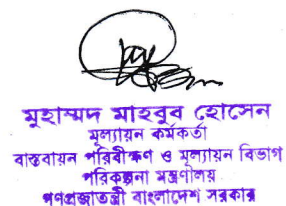 মুহাম্মদ মাহবুব হোসেন
মূল্যায়ন কর্মকর্তা
বাস্তবায়ন পরিবীক্ষণ ও মূল্যায়ন বিভাগ
পরিকল্পনা মন্ত্রণালয়
গণপ্রজাতন্ত্রী বাংলাদেশ সরকার